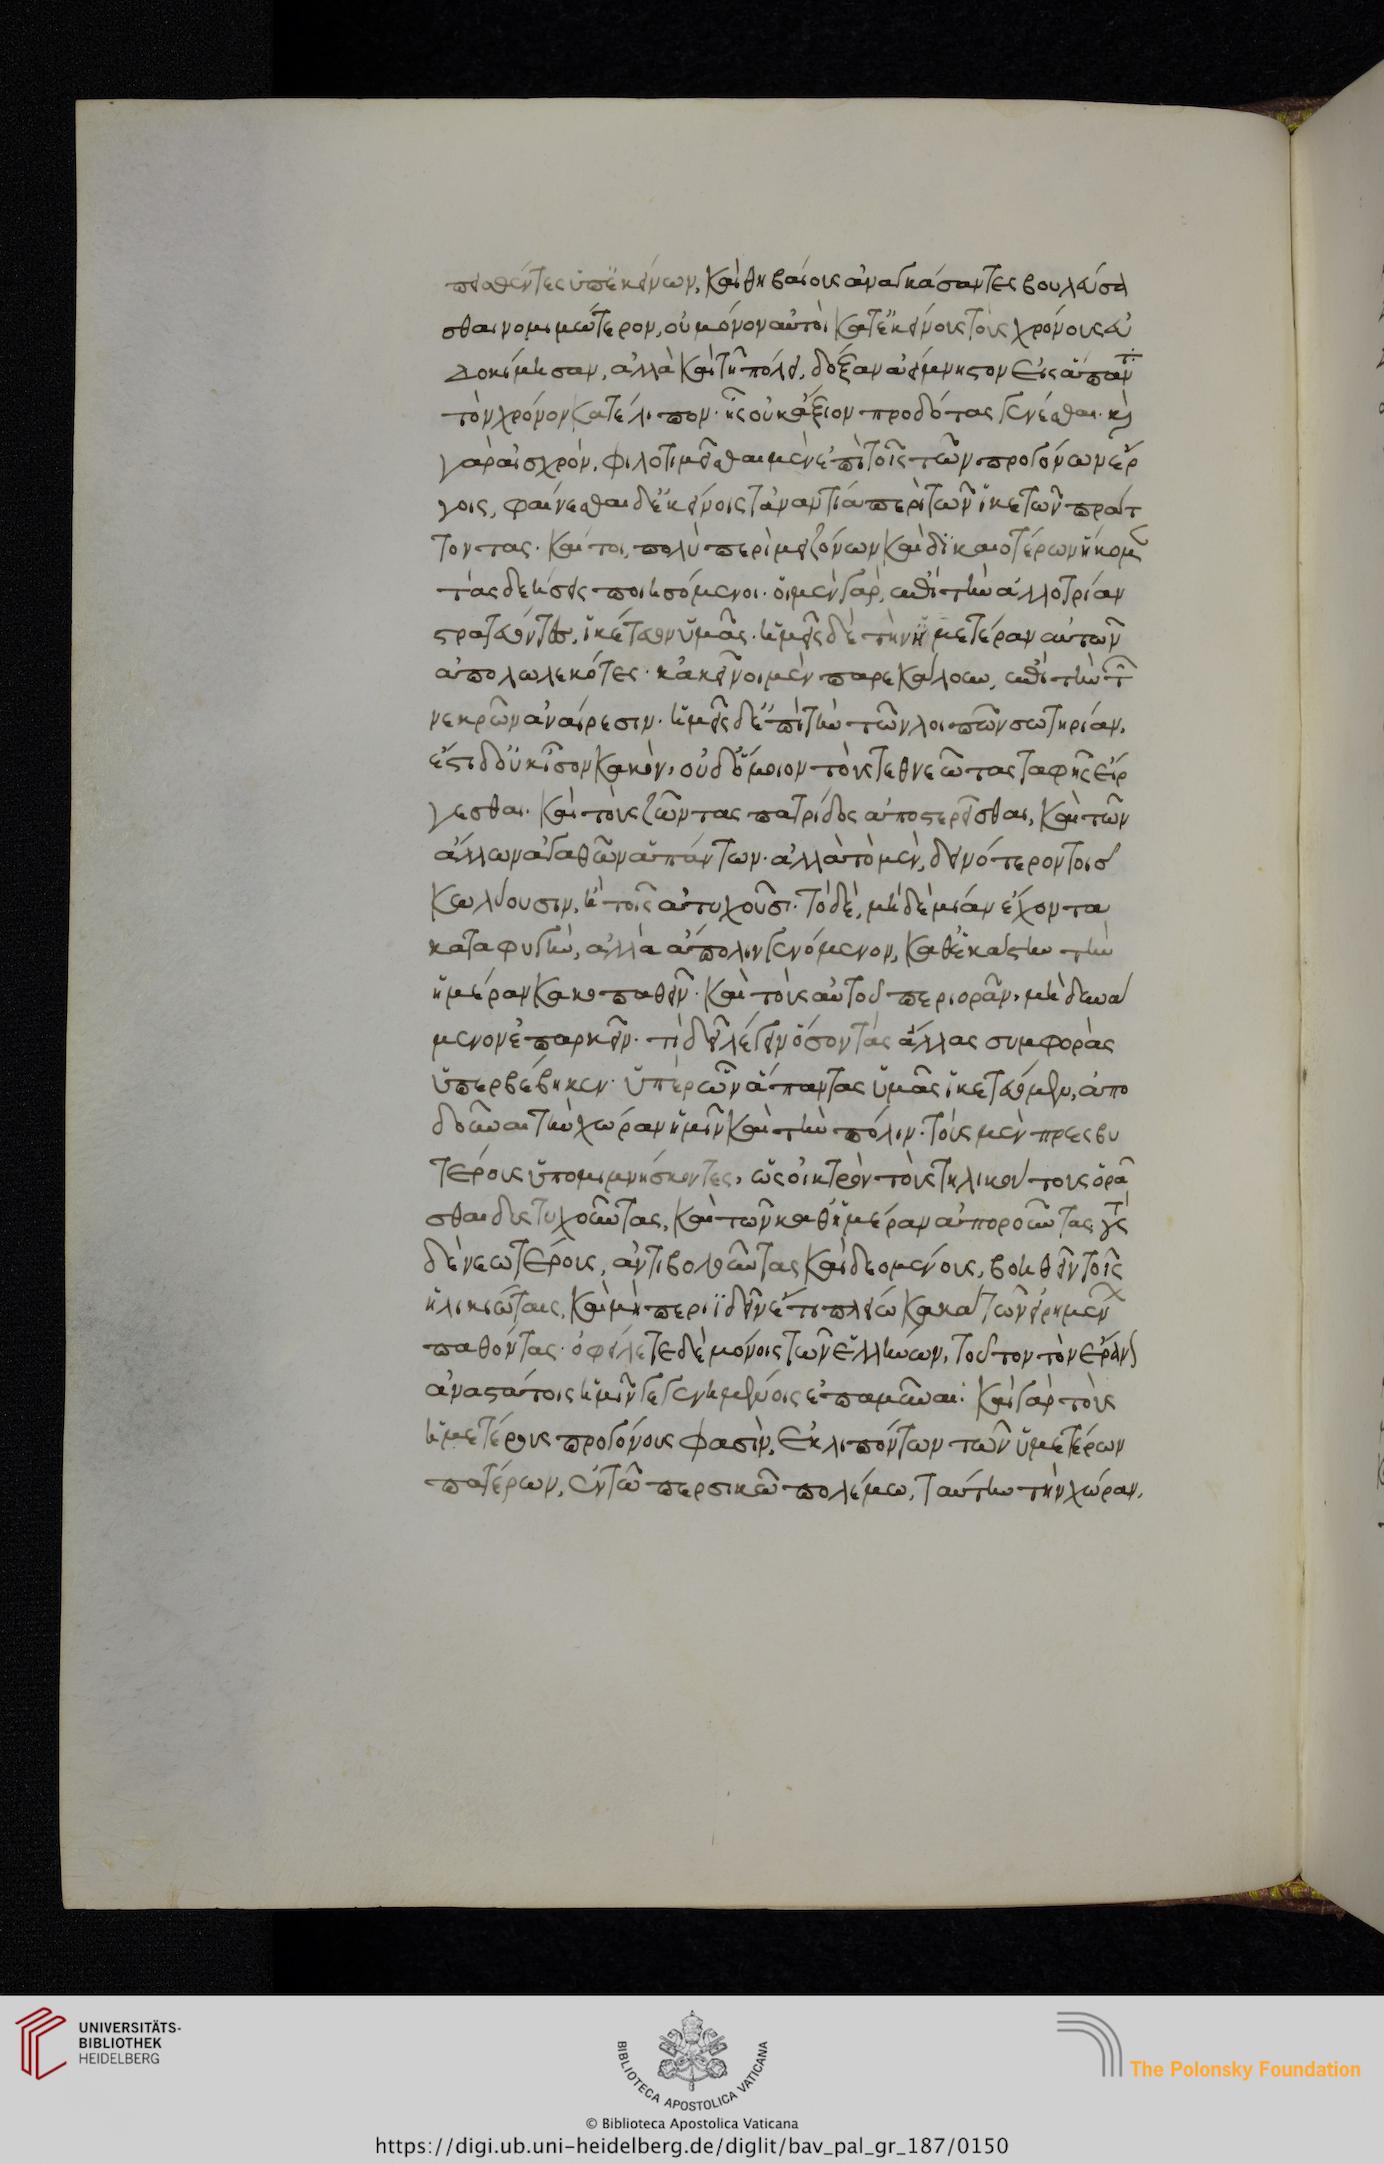 πεισθέντες ὑπ' ἐκείνων, καὶ θηβαίοις ἀναγκάσαντες βουλεύσα
σθαι νομιμώτερον, οὐ μόνον αὐτοὶ κατ' ἐκείνοις τοὺς χρόνους εὐ
δοκίμησαν, ἀλλὰ καὶ τῆ πόλει, δόξαν ἀείμνηστον εἰς ἅπαντ
τὸν χρόνον κατέλιπον· ἧς οὐκ ἄξιον προδότας γενέσθαι· καὶ
γὰρ αἰσχρὸν, φιλοτιμεῖσθαι μὲν ἐπὶ τοῖς τῶν προγόνων ἔρ
γοις, φαίνεσθαι δ' ἐκείνοις τἀναντία περὶ τῶν ἱκετῶν πράτ
τοντας· καίτοι, πολὺ περὶ μειζόνων καὶ δικαιοτέρων ἥκομεν
τὰς δεήσεις ποιησόμενοι· οἱ μὲν γὰρ, ἐπὶ τὴν ἀλλοτρίαν
στρατεύσαντες, ἱκέτευον ὑμᾶς· ἡμεῖς δὲ τὴν ἡμετέραν αὐτῶν
ἀπολωλεκότες· κἀκεῖνοι μὲν παρεκάλουν, ἐπὶ τὴν τῶν
νεκρῶν ἀναίρεσιν· ἡμεῖς δ' ἐπὶ τὴν τῶν λοιπῶν σωτηρίαν.
ἔστι δ' οὐκ ἴσον κακὸν, οὐδ' ὅμοιον τοὺς τεθνεῶτας ταφῆς εἴρ
γεσθαι· καὶ τοὺς ζῶντας πατρίδος ἀποστερεῖσθαι, καὶ τῶν
ἄλλων ἀγαθῶν ἁπάντων· ἀλλὰ τὸ μὲν, δεινότερον τοῖς
κωλύουσιν, ἢ τοῖς ἀτυχοῦσι· τὸ δὲ, μηδεμίαν ἔχοντα
καταφυγὴν, ἀλλὰ ἄπολιν γενόμενον, καθ' ἑκάστην τὴν
ἡμέραν κακοπαθεῖν· καὶ τοὺς αὑτοῦ περιορᾶν, μὴ δυνά
μενον ἐπαρκεῖν· τί δεῖ λέγειν ὅσον τὰς ἄλλας συμφορὰς
ὑπερβέβηκεν· ὑπὲρ ὧν ἅπαντας ὑμᾶς ἱκετεύομεν, ἀπο
δοῦναι τὴν χώραν ἡμῖν καὶ τὴν πόλιν· τοὺς μὲν πρεσβυ
τέροις ὑπομιμνήσκοντες, ὡς οἰκτρὸν τοὺς τηλικούτους ὁρᾶ
σθαι δυστυχοῦντας, καὶ τῶν καθ' ἡμέραν ἀποροῦντας τοῖς
δὲ νεωτέροις, ἀντιβολοῦντας καὶ δεομένοις, βοηθεῖν τοῖς
ἡλικιώταις, καὶ μὴ περιϊδεῖν ἔτι πλείω κακὰ τῶν εἰρημένων
παθόντας· ὀφείλετε δὲ μόνοις τῶν ἑλλήνων, τοῦτον τὸν ἔρανον
ἀναστάτοις ἡμῖν γεγενημένοις ἐπαμῦναι· καὶ γὰρ τοὺς
ἡμετέροις προγόνοις φασὶν, ἐκλιπόντων τῶν ὑμετέρων
πατέρων, ἐν τῶ περσικῶ πολέμω, ταύτην τὴν χώραν,
UNIVERSITÄTS-
BIBLIOTHEK
HEIDELBERG
BIBLIOTECA APOSTOLICA VATICANA
The Polonsky Foundation
© Biblioteca Apostolica Vaticana
https://digi.ub.uni-heidelberg.de/diglit/bav_pal_gr_187/0150